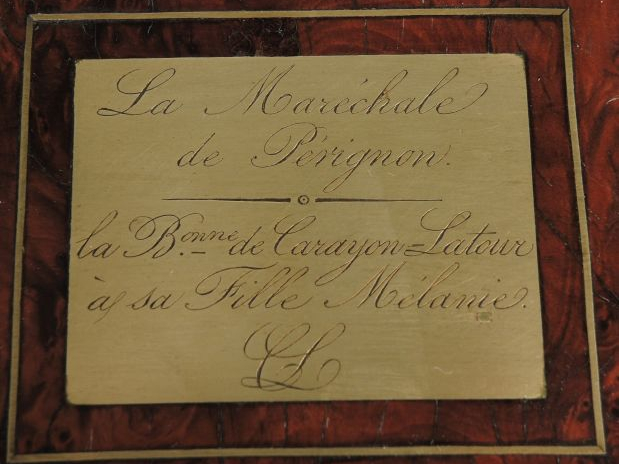 La Maréchale
de Pérignon.
la B.onne de Carayon=Latour
à sa Fille Mélanie.
CL